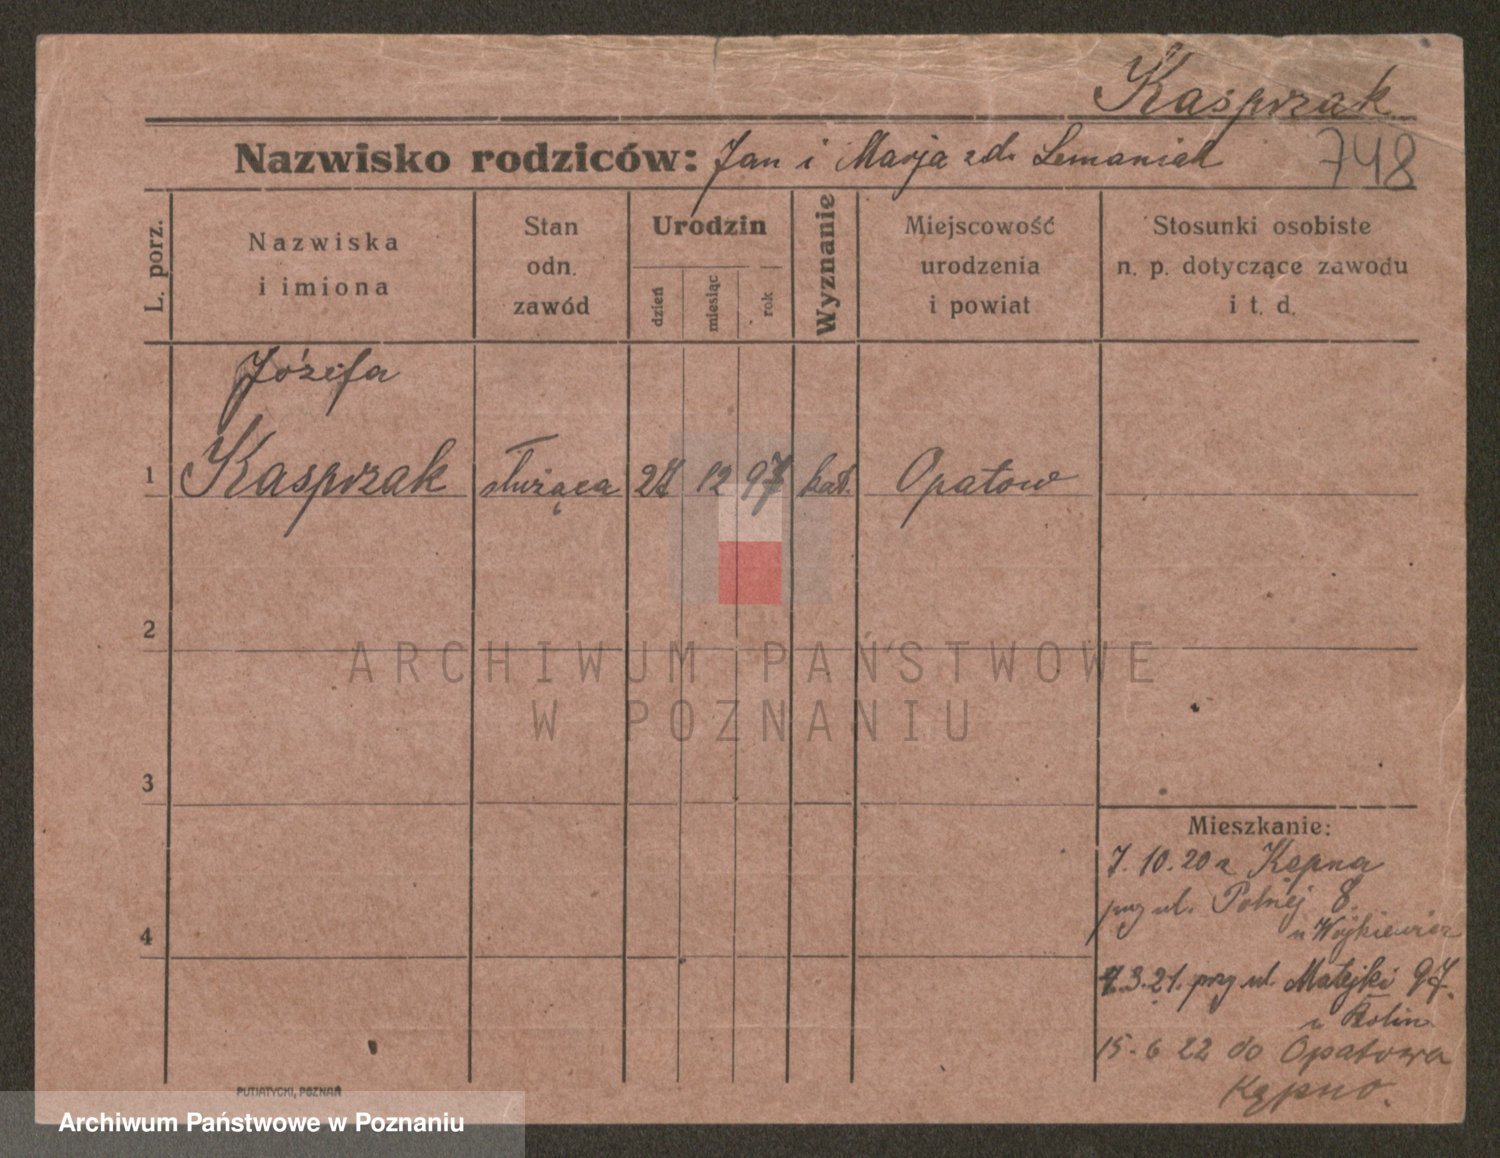 Kasprzak
748
Nazwisko rodziców: Jan i Marja zd. Lemaniak
L. porz.
Nazwiska
i imiona
Stan
odn.
zawód
Urodzin
dzień
miesiąc
rok
Wyznanie
Miejscowość
urodzenia
i powiat
Stosunki osobiste
n. p. dotyczące zawodu
i t. d.
Józefa
1 Kasprzak służąca 27 12 97 kat. Opatow
2
ARCHIWUM PAŃSTWOWE
W POZNANIU
3
Mieszkanie:
7. 10. 20 z Kępna
przy ul. Polnej 8
u Wojkiewicz
4
4.3.21. przy ul. Matejki 97.
u Bolin
15. 6 22 do Opatowa
Kępno.
PUTIATYCKI, POZNAŃ
Archiwum Państwowe w Poznaniu